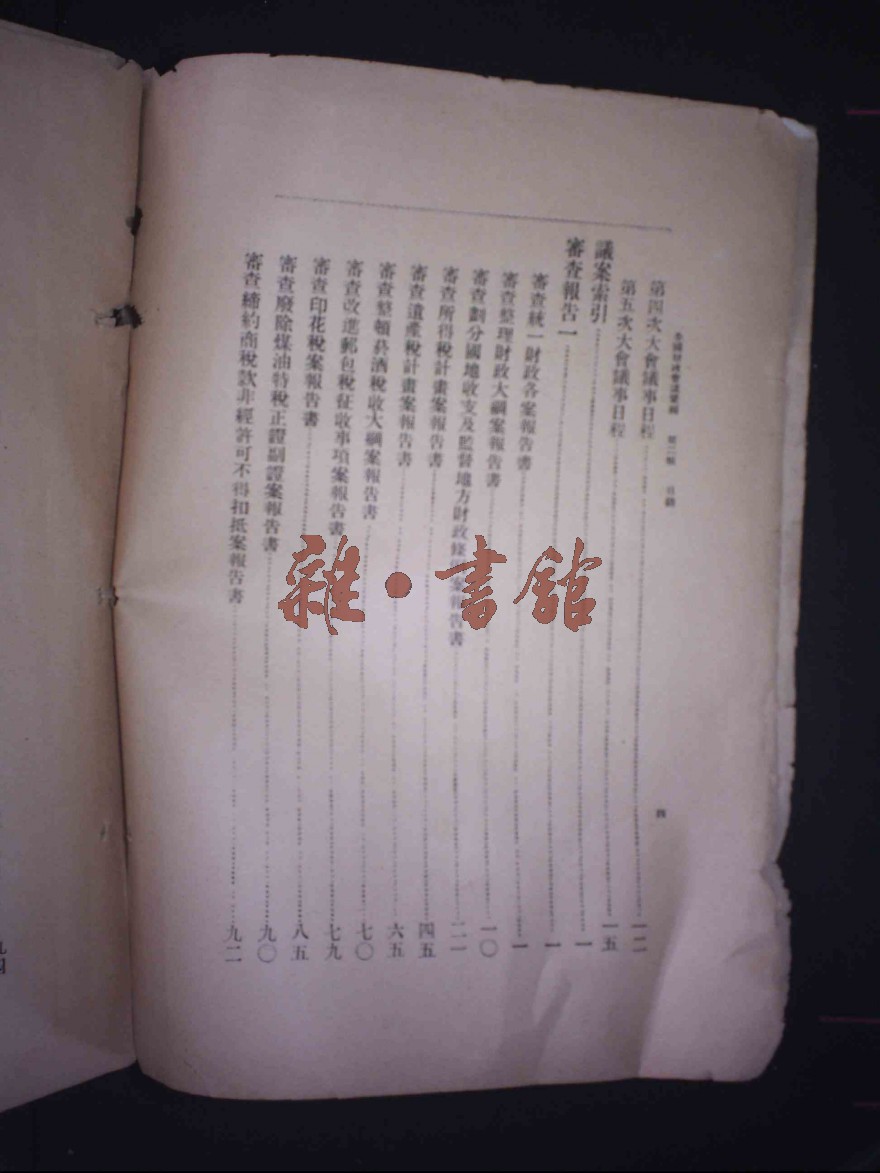 全國財政會議彙編 第二輯 目錄 四
第四次大會議事日程……一二
第五次大會議事日程……一五
議案索引……一
審查報告一……一
審查統一財政各案報告書……一
審查整理財政大綱案報告書……一〇
審查劃分國地收支及監督地方財政條案報告書……二一
審查所得稅計畫案報告書……四五
審查遺產稅計畫案報告書……六五
審查整頓菸酒稅收大綱案報告書……七〇
審查改進郵包稅征收事項案報告書……七九
審查印花稅案報告書……八五
審查廢除煤油特稅正證副證案報告書……九〇
審查締約商稅款非經許可不得扣抵案報告書……九二
雜·書館